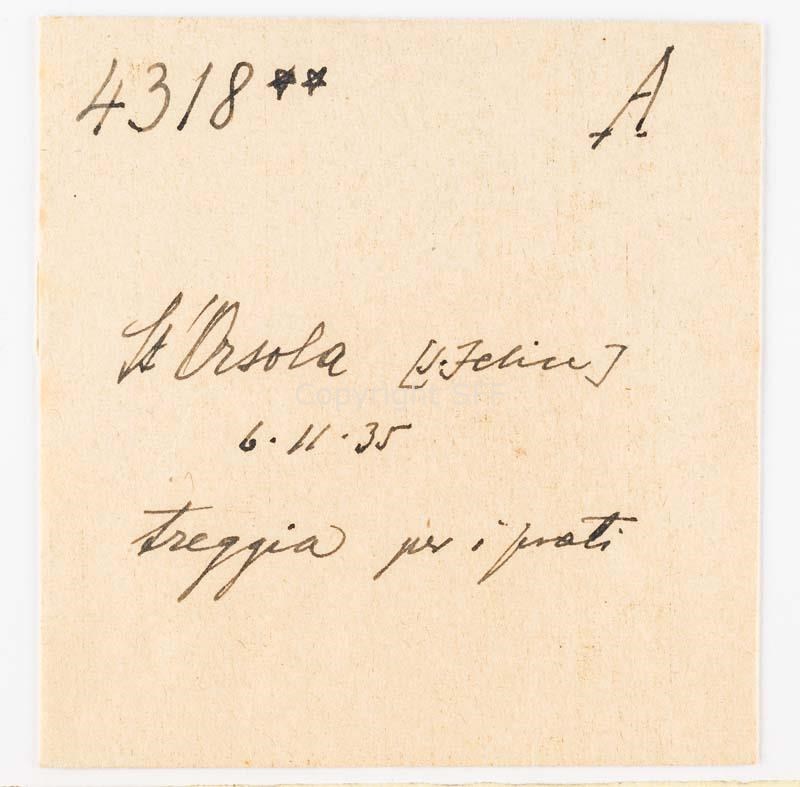 4318** A
St'Orsola [S. Felice]
6.11.35
treggia per i prati
Copyright StF